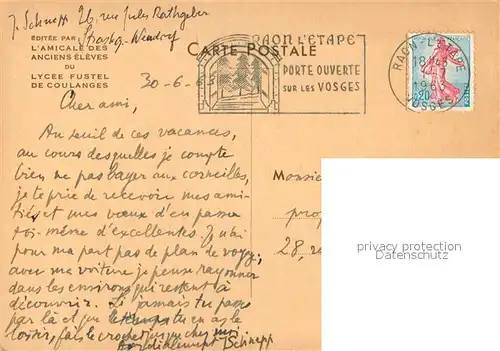 J. Schnepp 26, rue Jules Rathgeber
Strasbg-Neudorf
ÉDITÉE PAR
L'AMICALE DES
ANCIENS ÉLÈVES
DU
LYCEE FUSTEL
DE COULANGES
CARTE POSTALE
RAON L'ÉTAPE
PORTE OUVERTE
SUR LES VOSGES
RAON-L'
18H
1963
VOSGES
0,20
POSTES
30-6-63
Cher ami,
Au seuil de ces vacances,
au cours desquelles je compte
bien ne pas bayer aux corneilles,
je te prie de recevoir mes ami-
tiés et mes vœux d'en passer
toi-même d'excellentes. Je n'ai
pour ma part pas de plan de voyage,
avec ma voiture je pense rayonner
dans les environs qui restent à
découvrir. Si jamais tu passes
par là et que tu en as le
loisir, fais le crochet jusque chez moi
Bien cordialement Schnepp
Monsieu
prof
28, ru
privacy protection
privacy protection